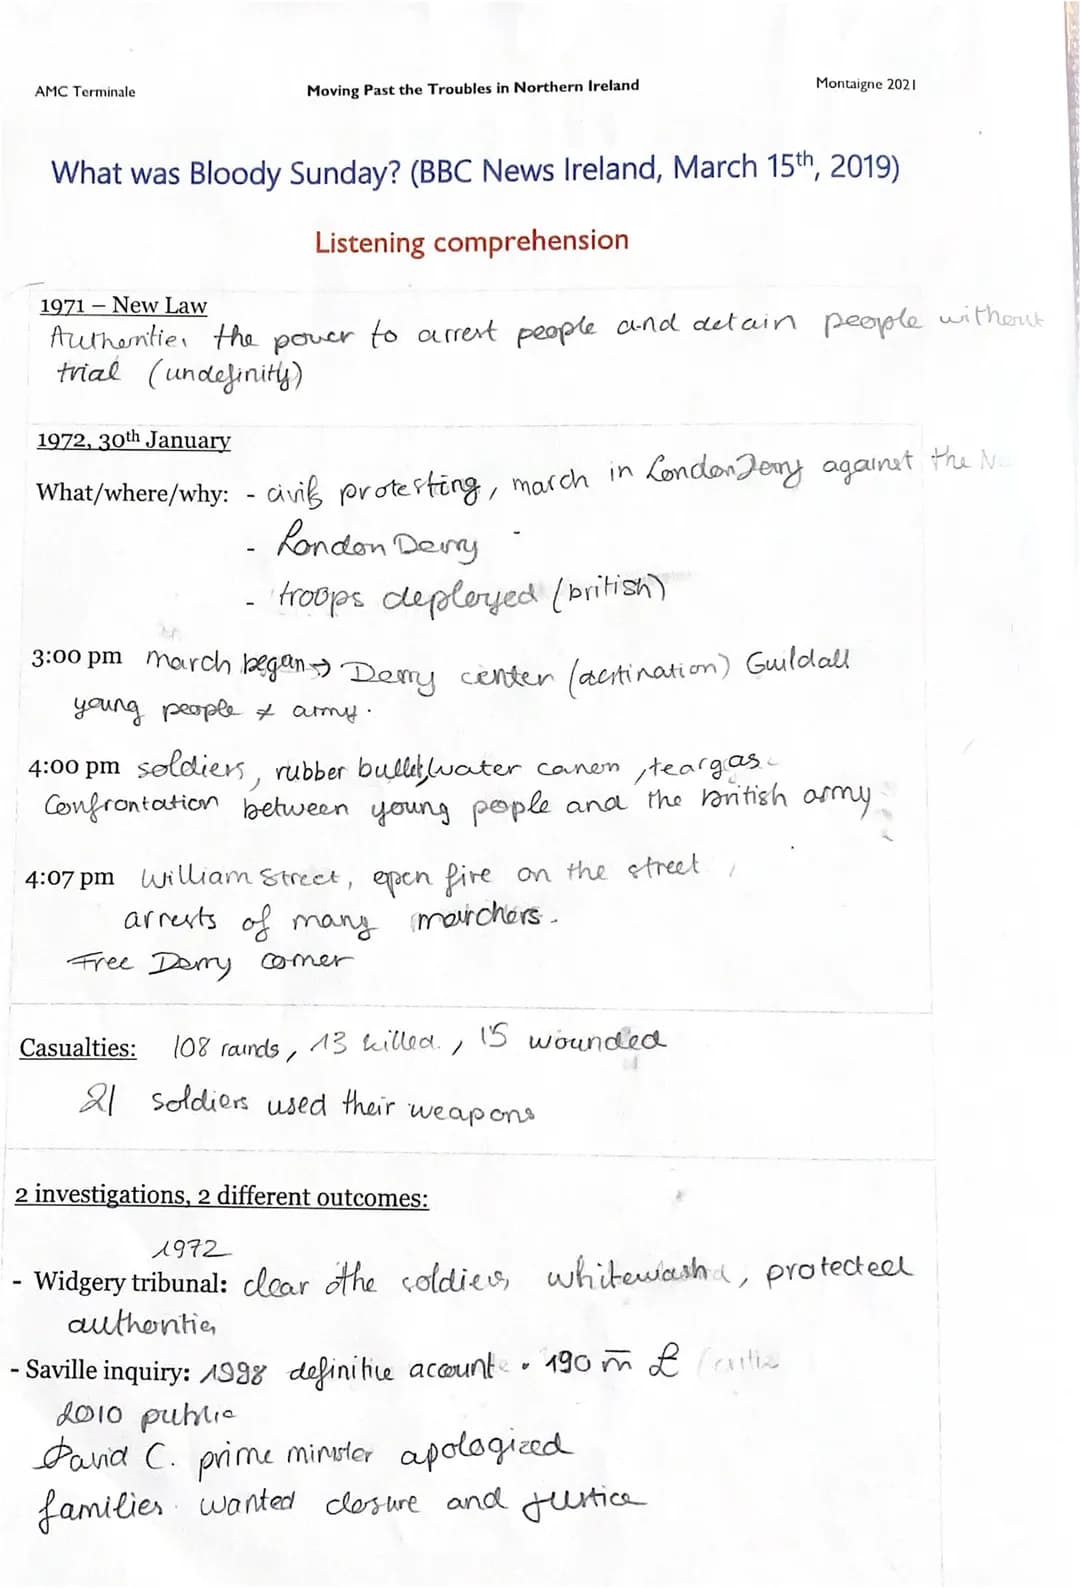 AMC Terminale Moving Past the Troubles in Northern Ireland Montaigne 2021
What was Bloody Sunday? (BBC News Ireland, March 15th, 2019)
Listening comprehension
1971 – New Law
Authorities the power to arrest people and detain people without
trial (undefinity)
1972, 30th January
What/where/why: - civils protesting, march in LondonDerry against the
- London Derry
- troops deployed (british)
3:00 pm march began → Derry center (destination) Guildall
young people ≠ army.
4:00 pm soldiers, rubber bullet, water canon, teargas
Confrontation between young people and the british army
4:07 pm William Street, open fire on the street,
arrests of many marchers.
Free Derry corner
Casualties: 108 rounds, 13 killed, 15 wounded
21 soldiers used their weapons
2 investigations, 2 different outcomes:
1972
- Widgery tribunal: clear the soldiers, whitewashed, protected
authorities
- Saville inquiry: 1998 definitive account • 190 m £
2010 public
David C. prime minister apologized
families wanted closure and justice